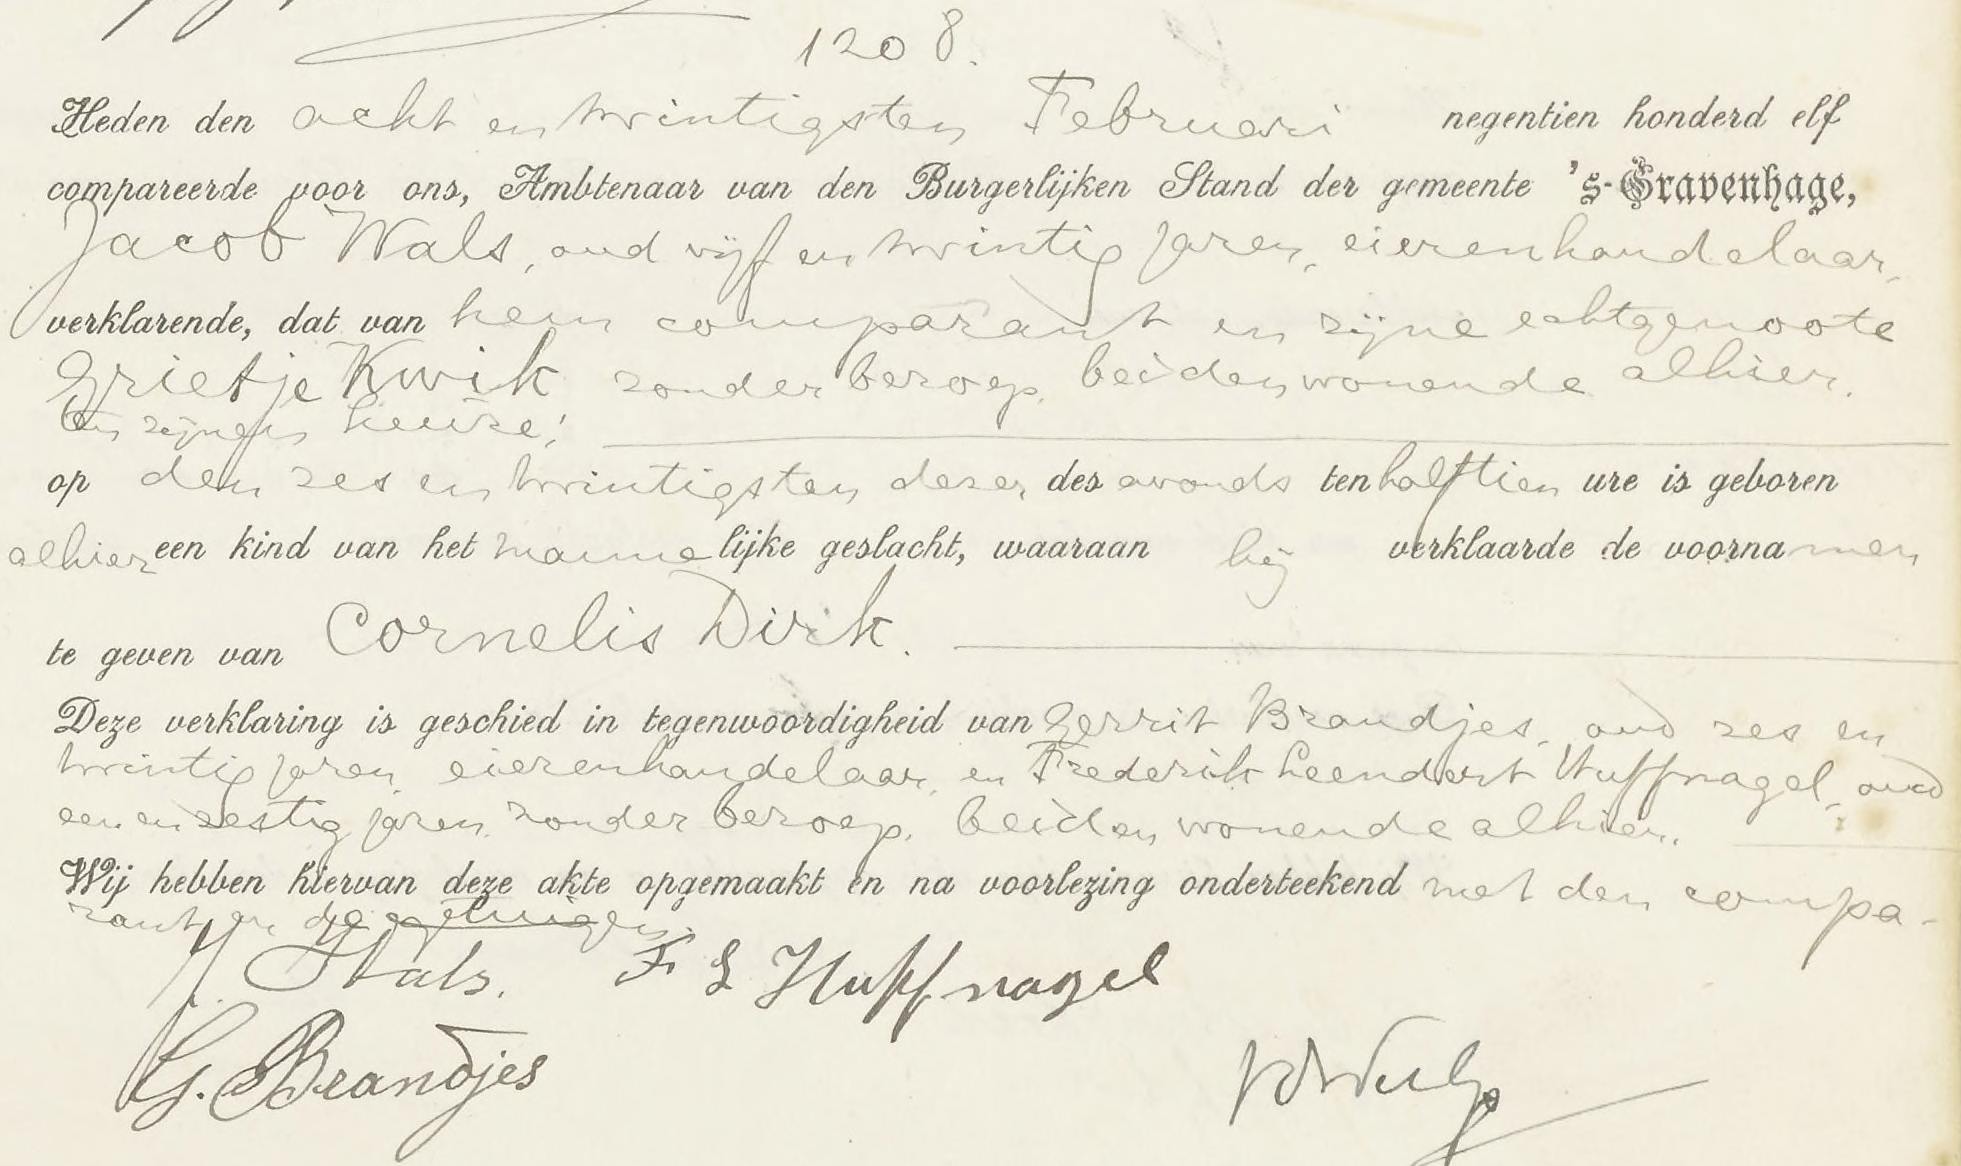 1208.
Heden den acht en twintigsten Februari negentien honderd elf
compareerde voor ons, Ambtenaar van den Burgerlijken Stand der gemeente 's-Gravenhage,
Jacob Wals, oud vijf en twintig jaren, eierenhandelaar,
verklarende, dat van hem comparant en zijne echtgenoote
Grietje Kwik zonder beroep, beiden wonende alhier.
ten zijnen huize;
op den zes en twintigsten dezer des avonds ten half tien ure is geboren
alhier een kind van het mannelijke geslacht, waaraan hij verklaarde de voornamen
te geven van Cornelis Dirk.
Deze verklaring is geschied in tegenwoordigheid van Gerrit Brandjes, oud zes en
twintig jaren, eierenhandelaar, en Frederik Leendert Huffnagel, oud
een en zestig jaren, zonder beroep, beiden wonende alhier.
Wij hebben hiervan deze akte opgemaakt en na voorlezing onderteekend met den compa-
rant en de getuigen.
J. Wals. F L Huffnagel
G. Brandjes